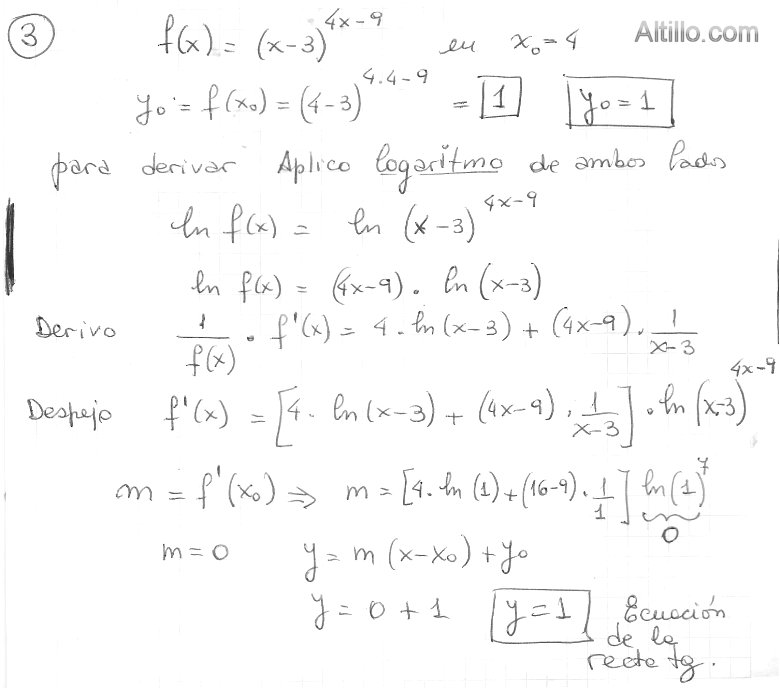 ③ f(x) = (x-3)^{4x-9} en x₀=4 Altillo.com
y₀ = f(x₀) = (4-3)^{4.4-9} = 1 y₀ = 1
para derivar Aplico logaritmo de ambos lados
ln f(x) = ln (x-3)^{4x-9}
ln f(x) = (4x-9) . ln (x-3)
Derivo 1/f(x) . f'(x) = 4 . ln (x-3) + (4x-9) . 1/(x-3)
Despejo f'(x) = [4 . ln (x-3) + (4x-9) . 1/(x-3)] . ln (x-3)^{4x-9}
m = f'(x₀) ⇒ m = [4 . ln (1) + (16-9) . 1/1] ln (1)^7
0
m = 0 y = m (x-x₀) + y₀
y = 0 + 1 y = 1 Ecuación
de la
recta tg.